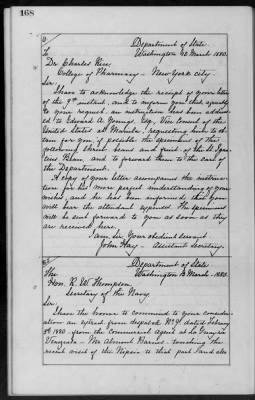 168
Department of State
Washington 12 March 1880.
To
Dr. Charles Rice
College of Pharmacy - New York city.
Sir
I have to acknowledge the receipt of your letter
of the 9th instant, and to inform you that agreeably
to your request, an instruction has been address
ed to Edward O. Youngs Esq. Vice Consul of the
United States at Manila, requesting him to ob
tain for you, if possible the specimens of the
following shrubs, beans and fruit of the St. Igna
tius Plan, and to forward them to the care of
the Department.
A copy of your letter accompanies the instruc
tion for his more perfect understanding of your
wishes, and he has been informed that you
will bear the attendant expenses. The specimens
will be sent forward to you as soon as they
are received here.
I am Sir Your obedient servant
John Hay - Assistant Secretary.
Department of State
Washington 12 March - 1880.
The
Hon. R. W. Thompson,
Secretary of the Navy.
Sir
I have the honor to commend to your consider
ation an extract from despatch No. 9 dated February
1880 - from the Commercial Agent at La Guayra
Venezuela - touching the
recent visit of the to that port and also